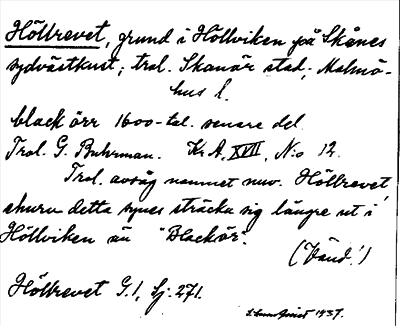 Höllrevet, grund i Höllviken på Skånes
sydvästkust; trol. Skanör stad; Malmö-
hus l.
black örr 1600-tal. senare del
Trol. G. Buhrman. Kr.A, XVII, N:o 12.
Trol. avsåg namnet nuv. Höllrevet,
ehuru detta synes sträcka sig längre ut i
Höllviken än "Blackör".
(Vänd!)
Höllrevet G.1, Sj. 271.
1937.